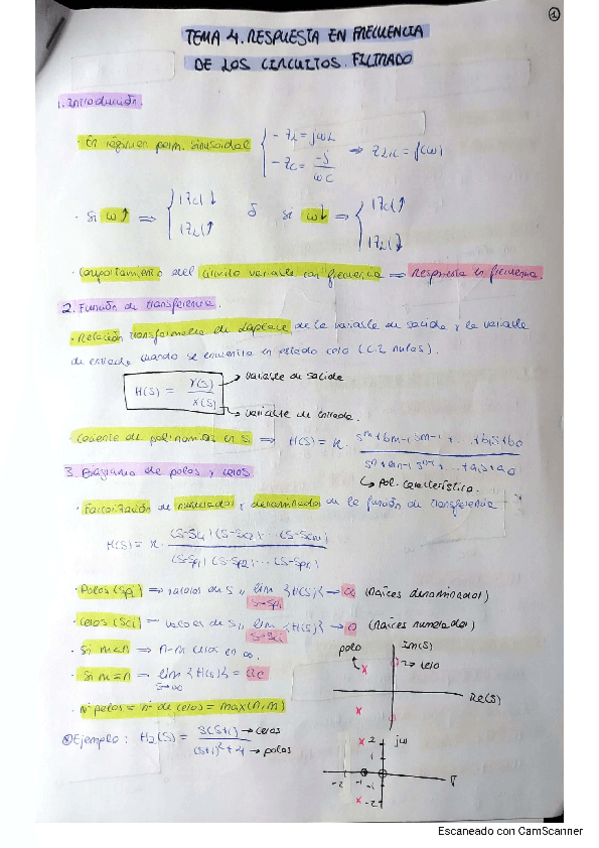 1
TEMA 4. RESPUESTA EN FRECUENCIA
DE LOS CIRCUITOS. FILTRADO
1. Introducción.
· En régimen perm. sinusoidal { - ZL = jωL
- ZC = -j/ωC ⇒ ZL,C = f(ω)
· Si ω↑ ⇒ { |ZC|↓ |ZL|↑ ó si ω↓ ⇒ { |ZC|↑ |ZL|↓
· Comportamiento del circuito variable con frecuencia ⇒ respuesta en frecuencia.
2. Función de transferencia.
· Relación transformadas de Laplace de la variable de salida y la variable
de entrada cuando se encuentra en estado cero (C.I. nulas).
H(S) = Y(S)/X(S)
variable de salida
variable de entrada.
· Cociente de polinomios en S ⇒ H(S) = K ·
→ pol. característico.
3. Diagrama de polos y ceros
· Factorización de numerador y denominador de la función de transferencia
H(S) = K · (S-Sc1)(S-Sc2)...(S-Scm) / (S-Sp1)(S-Sp2)...(S-Spn)
· Polos (Spi) ⇒ valores de S // lim S→Spi {H(S)} → ∞ (Raíces denominador)
· Ceros (Sci) ⇒ valores de S // lim S→Sci {H(S)} → 0 (Raíces numerador)
· Si m<n ⇒ n-m ceros en ∞.
· Si m=n ⇒ lim S→∞ {H(S)} =
· Nº polos = nº de ceros = max(n,m)
polo
Im(S)
→ cero
Re(S)
Ejemplo: H2(S) = S(S+1) → ceros / (S+1)²+4 → polos
2
jω
1
-2 -1
σ
-1
-2
Escaneado con CamScanner